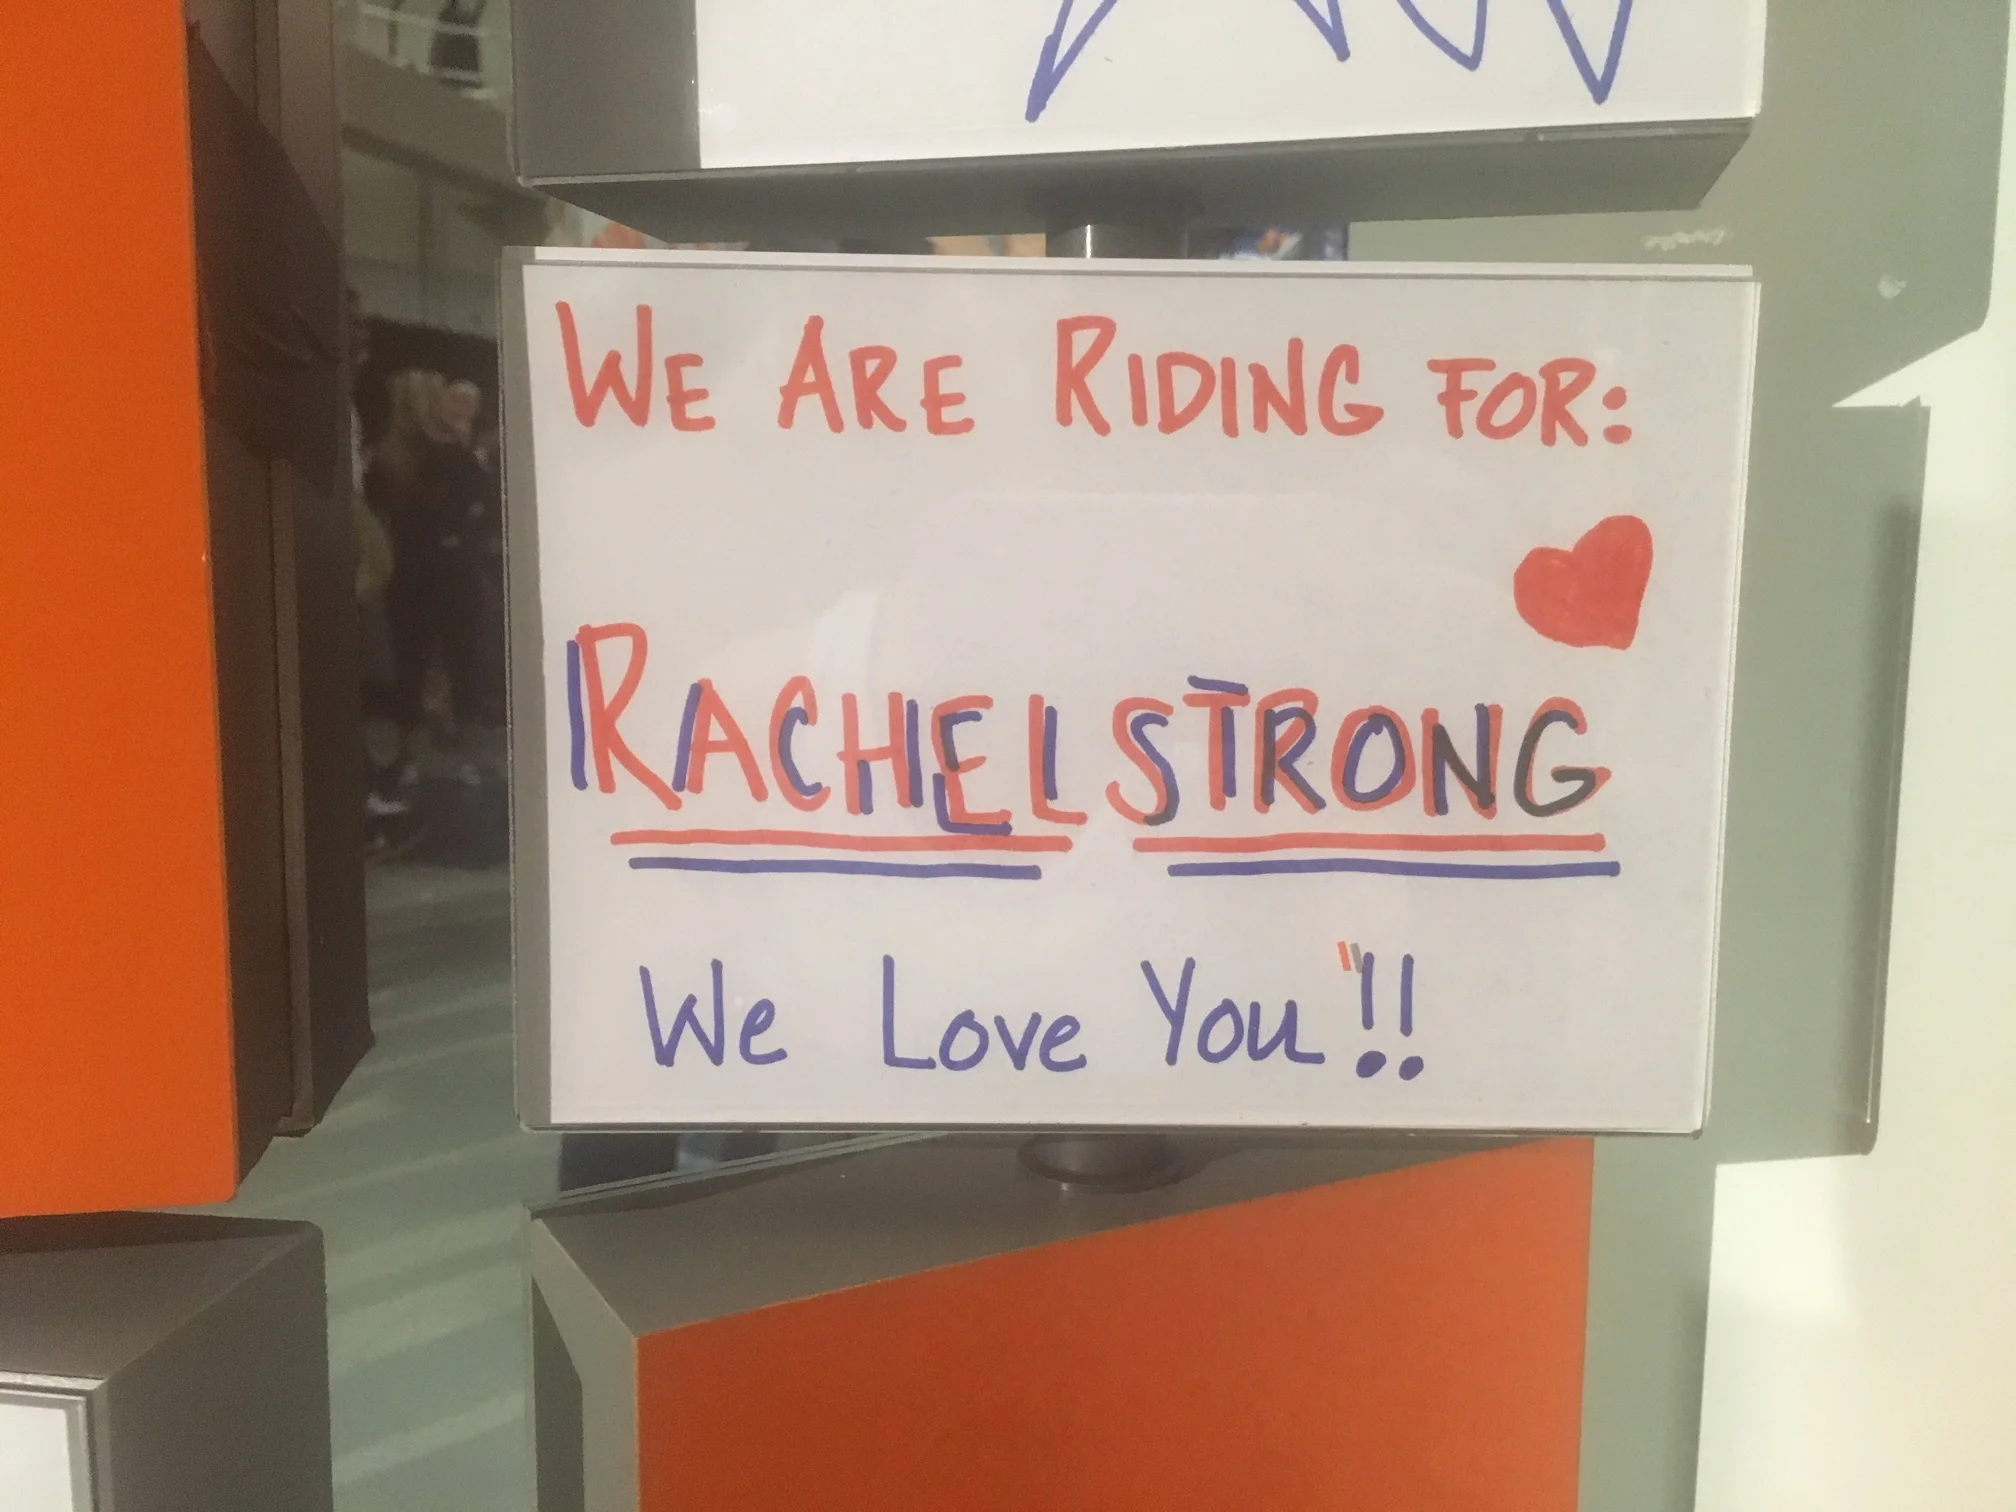 WE ARE RIDING FOR:
RACHELSTRONG
We Love You!!